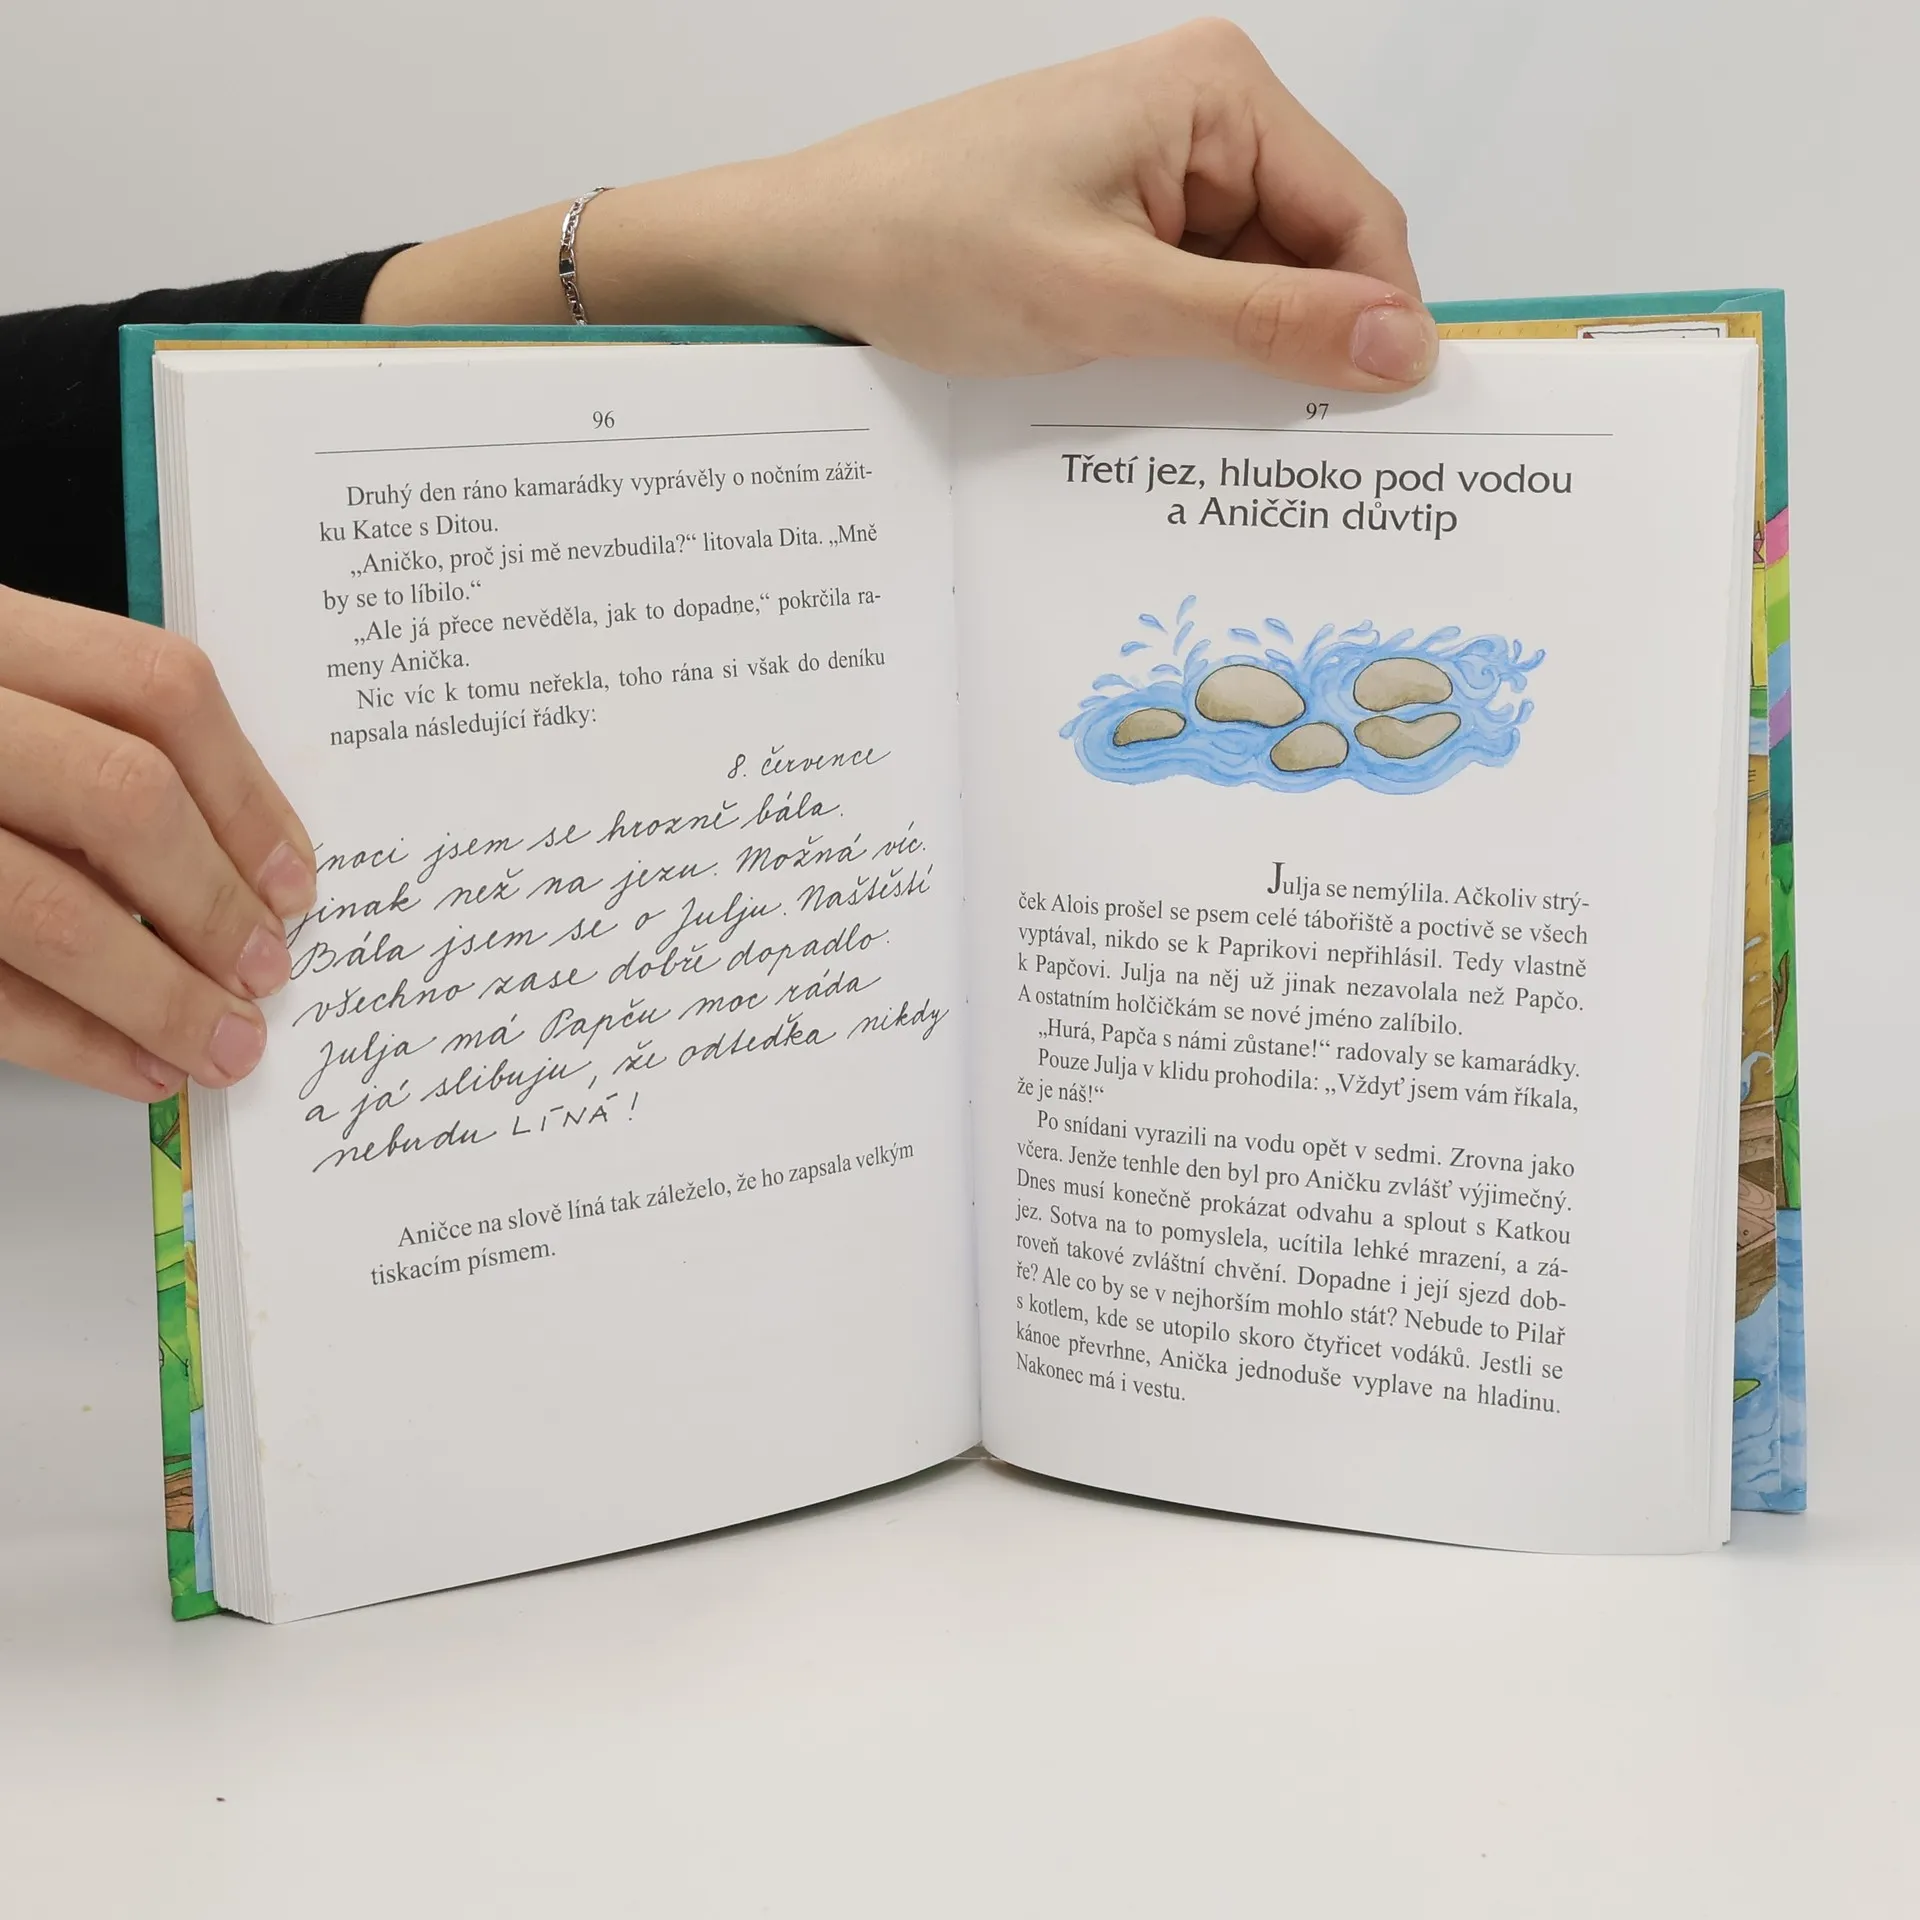 96
Druhý den ráno kamarádky vyprávěly o nočním zážit-
ku Katce s Ditou.
„Aničko, proč jsi mě nevzbudila?“ litovala Dita. „Mně
by se to líbilo.“
„Ale já přece nevěděla, jak to dopadne,“ pokrčila ra-
meny Anička.
Nic víc k tomu neřekla, toho rána si však do deníku
napsala následující řádky:
8. července
jsem se hrozně bála.
jinak než na jezu. Možná víc.
Bála jsem se o Julju. Naštěstí
všechno zase dobře dopadlo.
Julja má Papču moc ráda
a já slibuju, že odteďka nikdy
nebudu LÍNÁ!
Aničce na slově líná tak záleželo, že ho zapsala velkým
tiskacím písmem.
97
Třetí jez, hluboko pod vodou
a Aniččin důvtip
Julja se nemýlila. Ačkoliv strý-
ček Alois prošel se psem celé tábořiště a poctivě se všech
vyptával, nikdo se k Paprikovi nepřihlásil. Tedy vlastně
k Papčovi. Julja na něj už jinak nezavolala než Papčo.
A ostatním holčičkám se nové jméno zalíbilo.
„Hurá, Papča s námi zůstane!“ radovaly se kamarádky.
Pouze Julja v klidu prohodila: „Vždyť jsem vám říkala,
že je náš!“
Po snídani vyrazili na vodu opět v sedmi. Zrovna jako
včera. Jenže tenhle den byl pro Aničku zvlášť výjimečný.
Dnes musí konečně prokázat odvahu a splout s Katkou
jez. Sotva na to pomyslela, ucítila lehké mrazení, a zá-
roveň takové zvláštní chvění. Dopadne i její sjezd dob-
ře? Ale co by se v nejhorším mohlo stát? Nebude to Pilař
s kotlem, kde se utopilo skoro čtyřicet vodáků. Jestli se
kánoe převrhne, Anička jednoduše vyplave na hladinu.
Nakonec má i vestu.